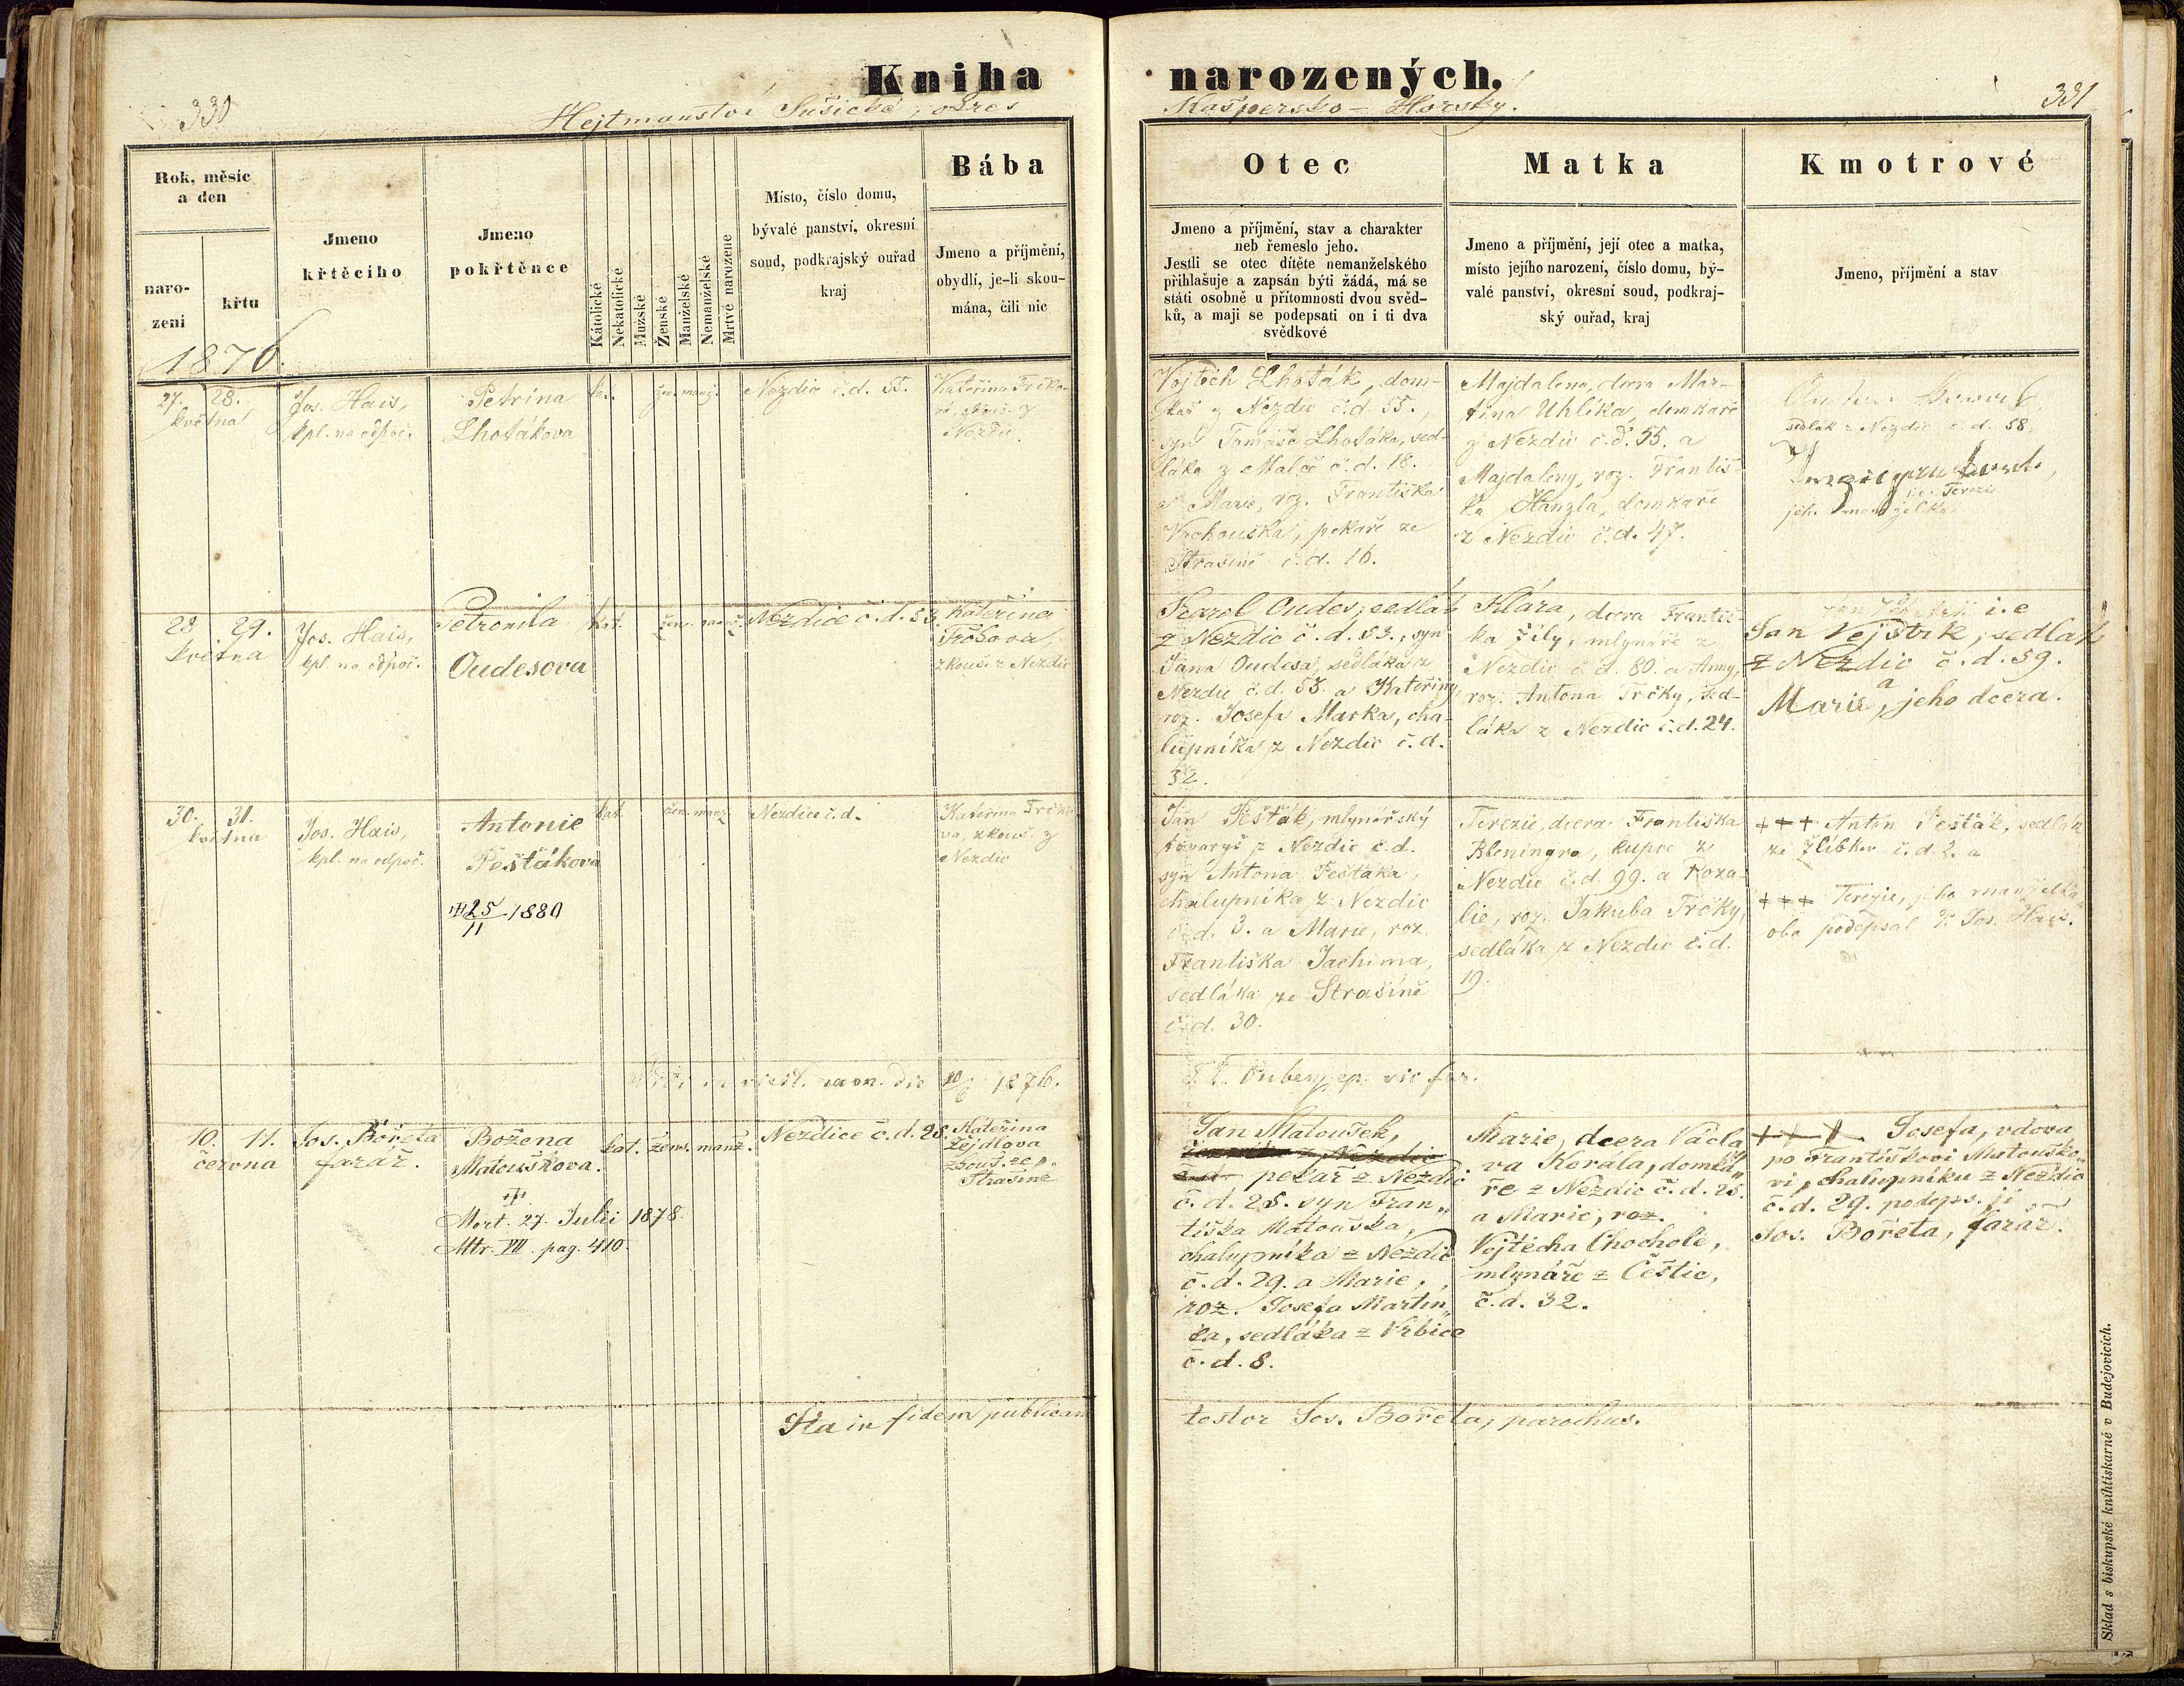 Kniha
narozených.
330
Hejtmanství Sušické, okres
Kašpersko-Horský.
331
Rok, měsíc
a den
naro-
zení
křtu
Jmeno
křtěcího
Jmeno
pokřtěnce
Kátolické
Nekatolické
Mužské
Ženské
Manželské
Nemanželské
Mrtvě narozene
Místo, číslo domu,
bývalé panství, okresní
soud, podkrajský ouřad
kraj
Bába
Jmeno a příjmění,
obydlí, je-li skou-
mána, čili nic
Otec
Jmeno a příjmění, stav a charakter
neb řemeslo jeho.
Jestli se otec dítěte nemanželského
přihlašuje a zapsán býti žádá, má se
státi osobně u přítomnosti dvou svěd-
ků, a mají se podepsati on i ti dva
svědkové
Matka
Jmeno a příjmění, její otec a matka,
místo jejího narození, číslo domu, bý-
valé panství, okresní soud, podkraj-
ský ouřad, kraj
Kmotrové
Jmeno, příjmění a stav
1876.
27. 28.
května
Jos. Hais,
kpl. na odpoč.
Petrina
Lhotákova
kat. žen. manž.
Nezdic č.d. 55.
Kateřina Trčko-
vá, zkouš. z
Nezdic.
Vojtěch Lhoták, dom-
kař z Nezdic č.d. 55.,
syn Tomáše Lhotáka, sed-
láka z Malče č.d. 18.
a Marie, roz. Františka
Vachouška, pekaře ze
Strašíně č.d. 16.
Majdalena, dcera Mar-
tina Uhlíka, domkaře
z Nezdic č.d. 55. a
Majdaleny, roz. Františ-
ka Hanzla, domkaře
z Nezdic č.d. 47.
sedlák z Nezdic č.d. 58.
Terezie
jeh. manželka
28 29.
května
Jos. Hais,
kpl. na odpoč.
Petronila
Oudesova
kat. žen. manž.
Nezdice č.d. 53.
Kateřina
Trčkova,
zkouš. z Nezdic
Karel Oudes, sedlák
z Nezdic č.d. 53., syn
Jana Oudesa, sedláka z
Nezdic č.d. 53. a Kateřiny,
roz. Josefa Marka, cha-
lupníka z Nezdic č.d.
32.
Klára, dcera Františ-
ka Žíly, mlynáře z
Nezdic č.d. 80. a Anny,
roz. Antona Trčky, sed-
láka z Nezdic č.d. 24.
i.e
Jan Vejstrk, sedlák
z Nezdic č.d. 59.
a
Marie, jeho dcera.
30. 31.
května
Jos. Hais,
kpl. na odpoč.
Antonie
Pešťákova
25/11 1880
kat. žen. manž.
Nezdice č.d.
Kateřina Trčko-
va, zkouš. z
Nezdic
Jan Pešťák, mlynářský
tovaryš z Nezdic č.d.
syn Antona Pešťáka,
chalupníka z Nezdic
č.d. 3. a Marie, roz.
Františka Jachima,
sedláka ze Strašíně
č.d. 30.
Terezie, dcera Františka
Bleningra, kupce z
Nezdic č.d. 99. a Roza-
lie, roz. Jakuba Trčky,
sedláka z Nezdic č.d.
19.
+++ Anton Pešťák, sedlák
ze Žlíbku č.d. 2. a
+++ Terezie, jeho manželka,
oba podepsal P. Jos. Hais.
Vidi in visit. can. die 10/6 1876.
vic for.
10. 11.
června
Jos. Bořeta
farář.
Božena
Matouškova.
Mort. 27. Julii 1878.
Mtr. VII. pag. 410.
kat. žens. manž.
Nezdice č.d. 28.
Kateřina
Zejdlova
zkouš. ze
Strašíně
Jan Matoušek,
pekař z Nezdic
č.d. 28. syn Fran„
tiška Matouška,
chalupníka z Nezdic
č.d. 29. a Marie,
roz. Josefa Martin„
ka, sedláka z Vrbice
č.d. 8.
Marie, dcera Václa„
va Korála, domká„
ře z Nezdic č.d. 28.
a Marie, roz.
Vojtěcha Chochole,
mlynáře z Čestic,
č.d. 32.
+++ Josefa, vdova
po Františkovi Matouško„
vi, chalupníku z Nezdic
č.d. 29. podeps. ji
Jos. Bořeta, farář.
Ita in fidem publicam
testor Jos. Bořeta, parochus.
Sklad s biskupské knihtiskarně v Budejovicích.